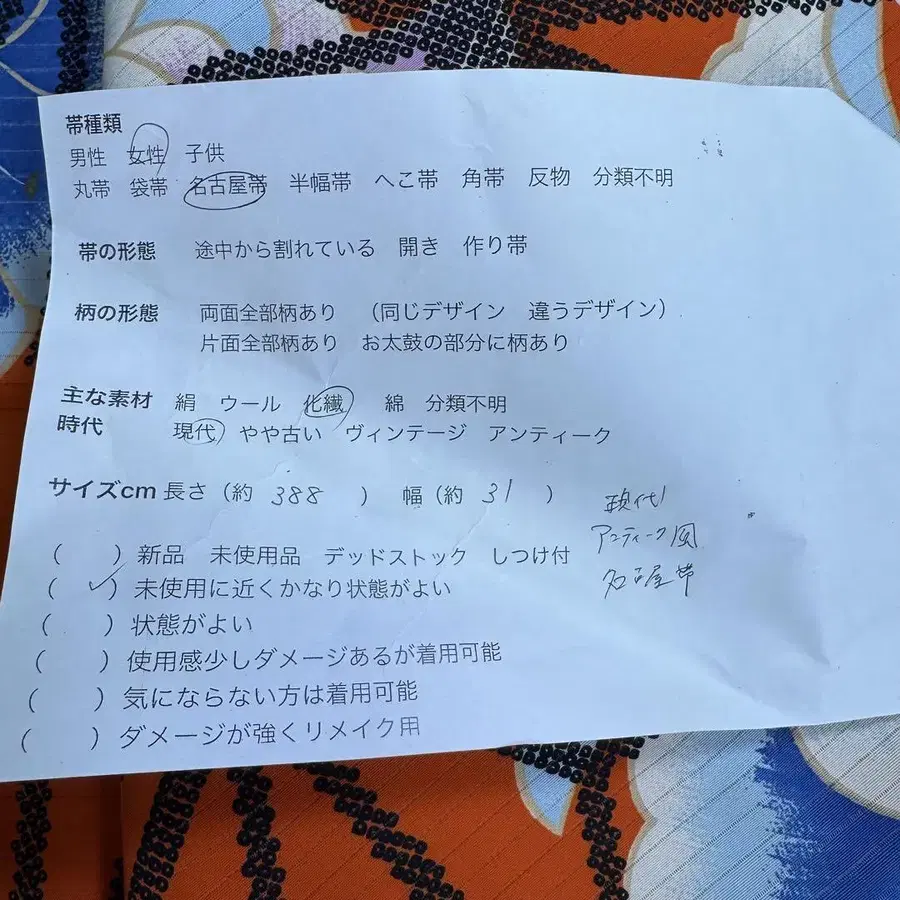 帯種類
男性 女性 子供
丸帯 袋帯 名古屋帯 半幅帯 へこ帯 角帯 反物 分類不明
帯の形態 途中から割れている 開き 作り帯
柄の形態 両面全部柄あり （同じデザイン 違うデザイン）
片面全部柄あり お太鼓の部分に柄あり
主な素材 絹 ウール 化繊 綿 分類不明
時代 現代 やや古い ヴィンテージ アンティーク
サイズcm 長さ（約 388 ） 幅（約 31 ）
現代
アンティーク風
名古屋帯
（ ）新品 未使用品 デッドストック しつけ付
（ ✓ ）未使用に近くかなり状態がよい
（ ）状態がよい
（ ）使用感少しダメージあるが着用可能
（ ）気にならない方は着用可能
（ ）ダメージが強くリメイク用